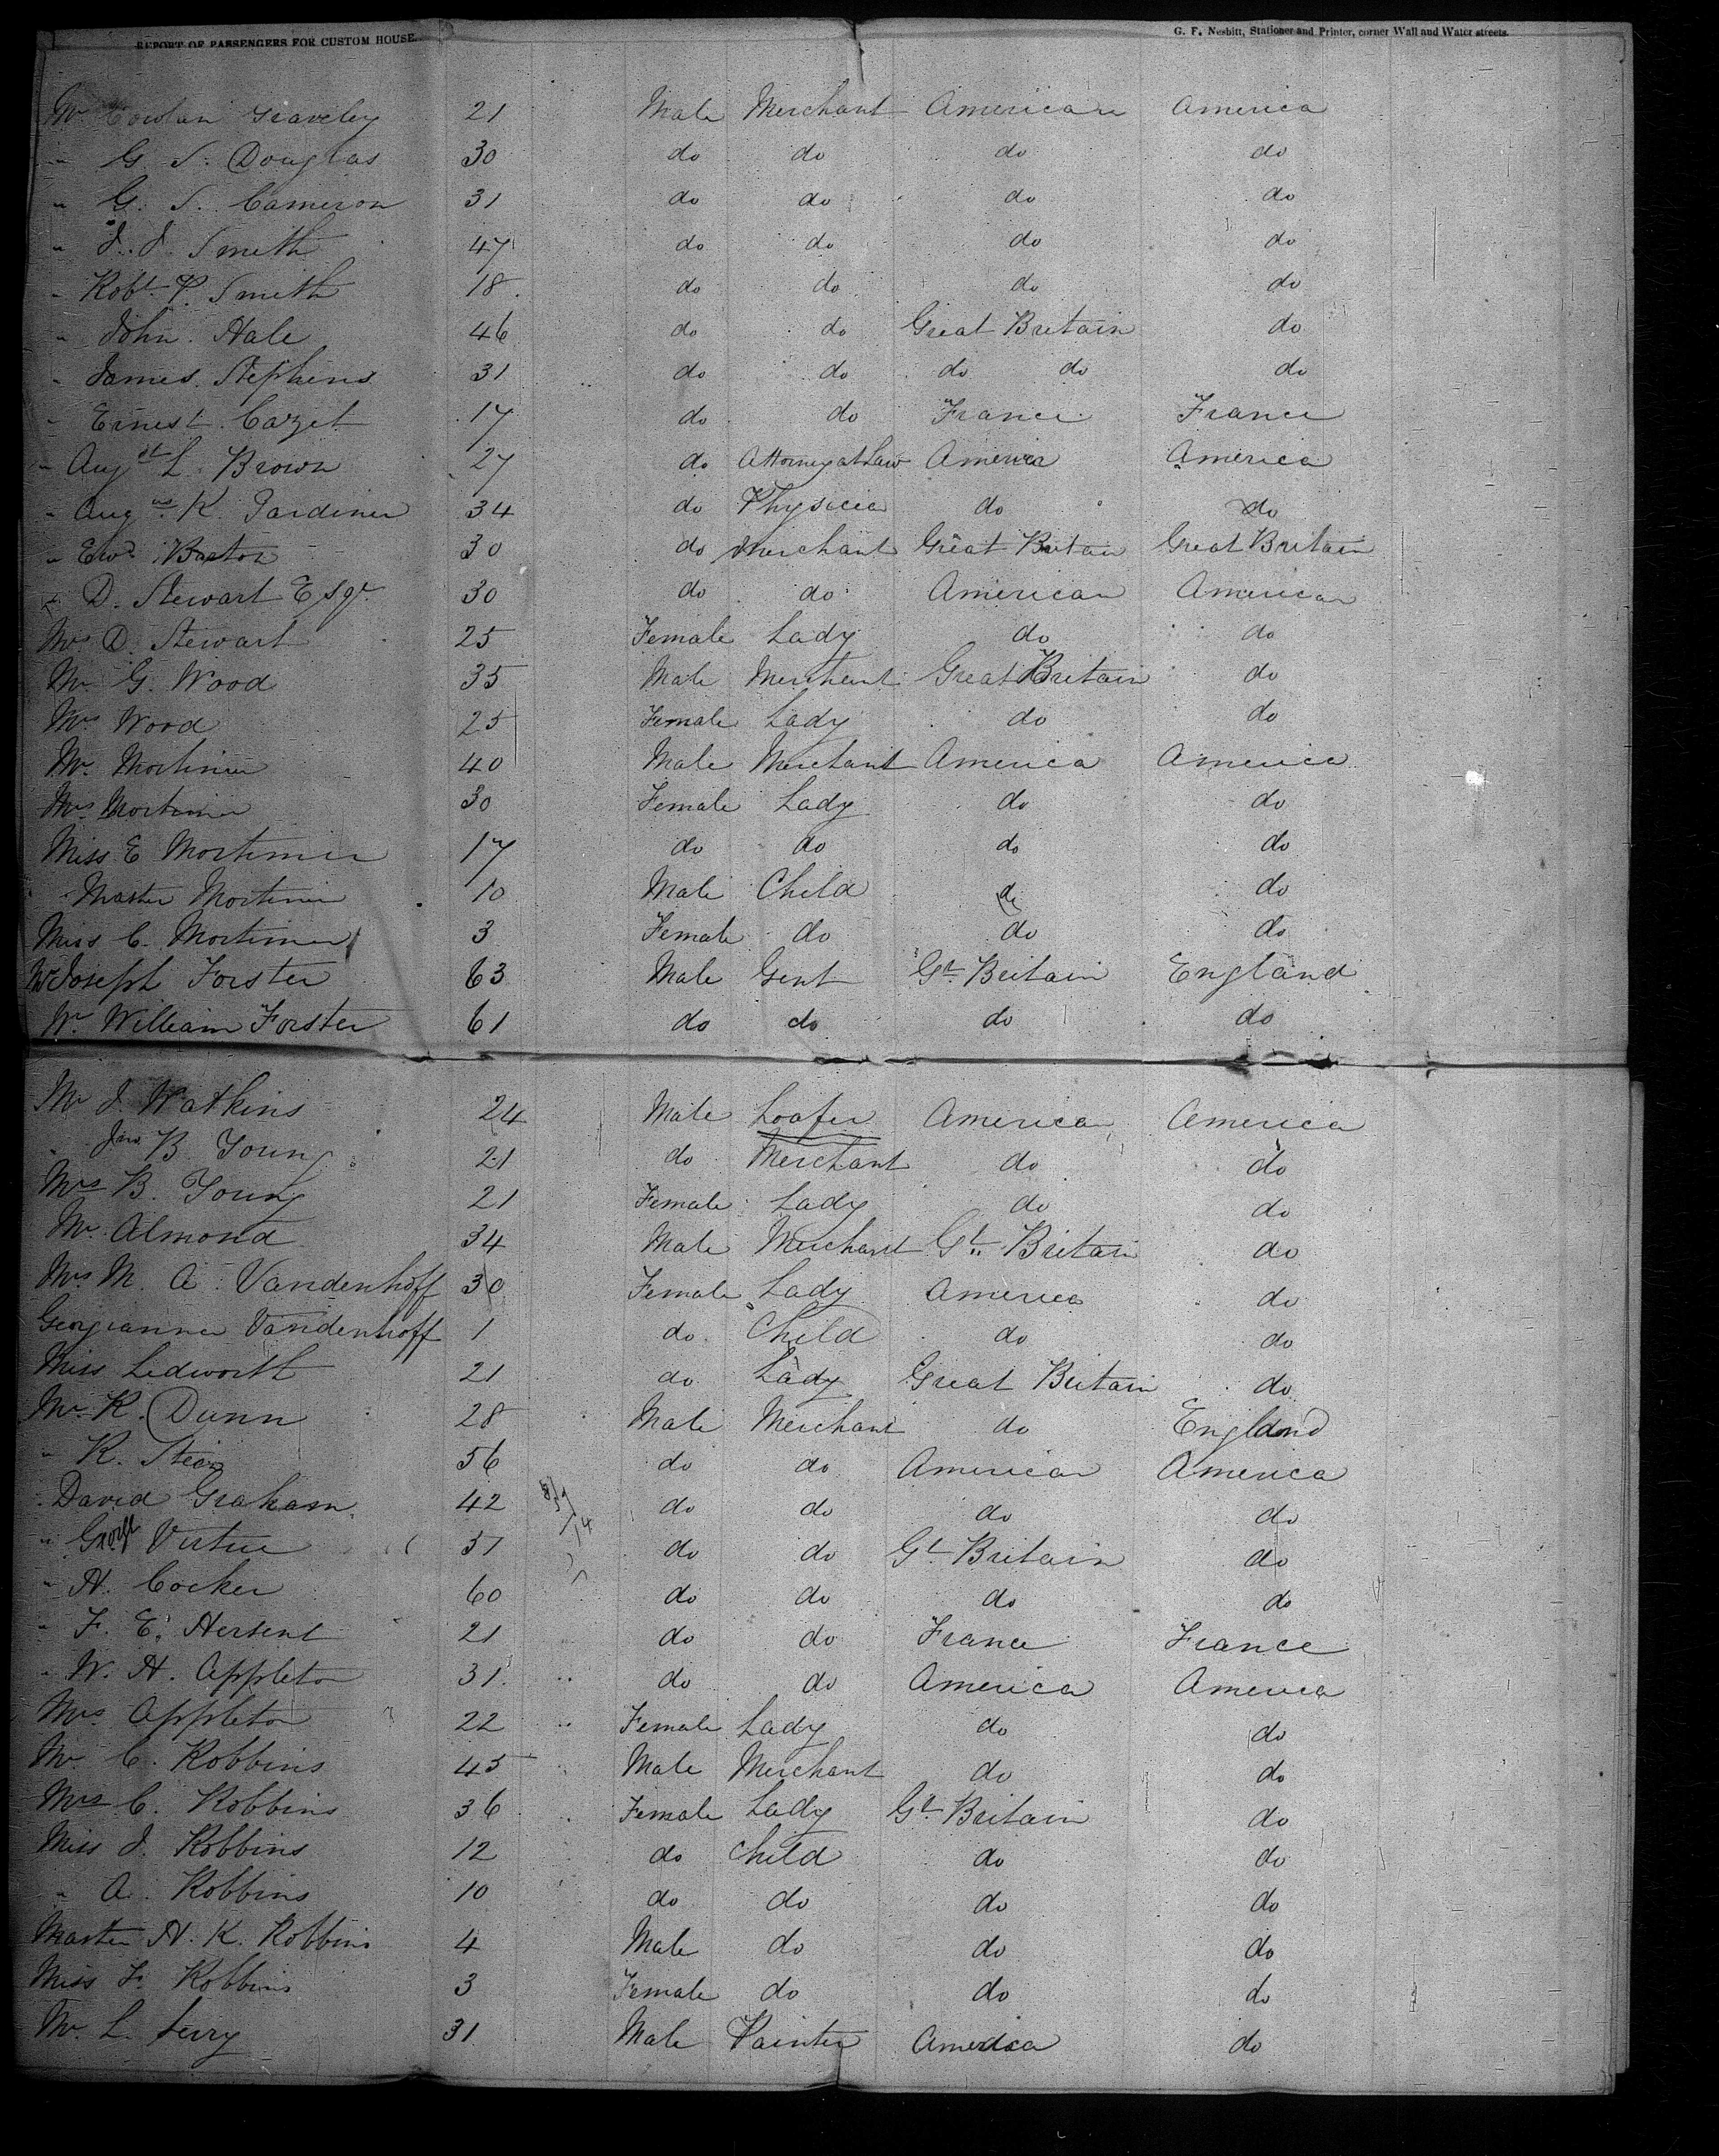 REPORT OF PASSENGERS FOR CUSTOM HOUSE.
G. F. Nesbitt, Stationer and Printer, corner Wall and Water streets.
Mr Cowlan Graveley 21 Male Merchant American America
" G. S. Douglas 30 do do do do
" G. S. Cameron 31 do do do do
" J. J. Smith 47 do do do do
" Robt. P. Smith 18 do do do do
" John Hale 46 do do Great Britain do
" James Stephens 31 do do do do do
" Ernest Cazet 17 do do France France
" Augst L. Brown 27 do Attorney at Law America America
" Augus. K. Gardiner 34 do Physicia do do
" Ewd. Baxton 30 do Merchant Great Britain Great Britain
D. Stewart Esqr. 30 do do American American
Mrs D. Stewart 25 Female Lady do do
Mr G. Wood 35 Male Merchant Great Britain do
Mrs Wood 25 Female Lady do do
Mr. Mortimer 40 Male Merchant America America
Mrs Mortimer 30 Female Lady do do
Miss E Mortimer 17 do do do do
Master Mortimer 10 Male Child do do
Miss C. Mortimer 3 Female do do do
Mr Joseph Forster 63 Male Gent Gt. Britain England
Mr William Forster 61 do do do do
Mr J. Watkins 24 Male Loafer America America
" Jas B. Young 21 do Merchant do do
Mrs B. Young 21 Female Lady do do
Mr. Almond 34 Male Merchant Gt. Britain do
Mrs M. A. Vandenhoff 30 Female Lady America do
Georgianna Vandenhoff 1 do Child do do
Miss Ledworth 21 do Lady Great Britain do
Mr. R. Dunn 28 Male Merchant do England
" R. 56 do do American America
" David Graham 42 do do do do
" George Virtue 37 do do Gt. Britain do
" H. Cocker 60 do do do do
" F. E. Hersent 21 do do France France
" W. H. Appleton 31 do do America America
Mrs Appleton 22 Female Lady do do
Mr. C. Robbins 45 Male Merchant do do
Mrs C. Robbins 36 Female Lady Gt. Britain do
Miss J. Robbins 12 do Child do do
" A. Robbins 10 do do do do
Master H. K. Robbins 4 Male do do do
Miss F. Robbins 3 Female do do do
Mr. L. Terry 31 Male Painter America do